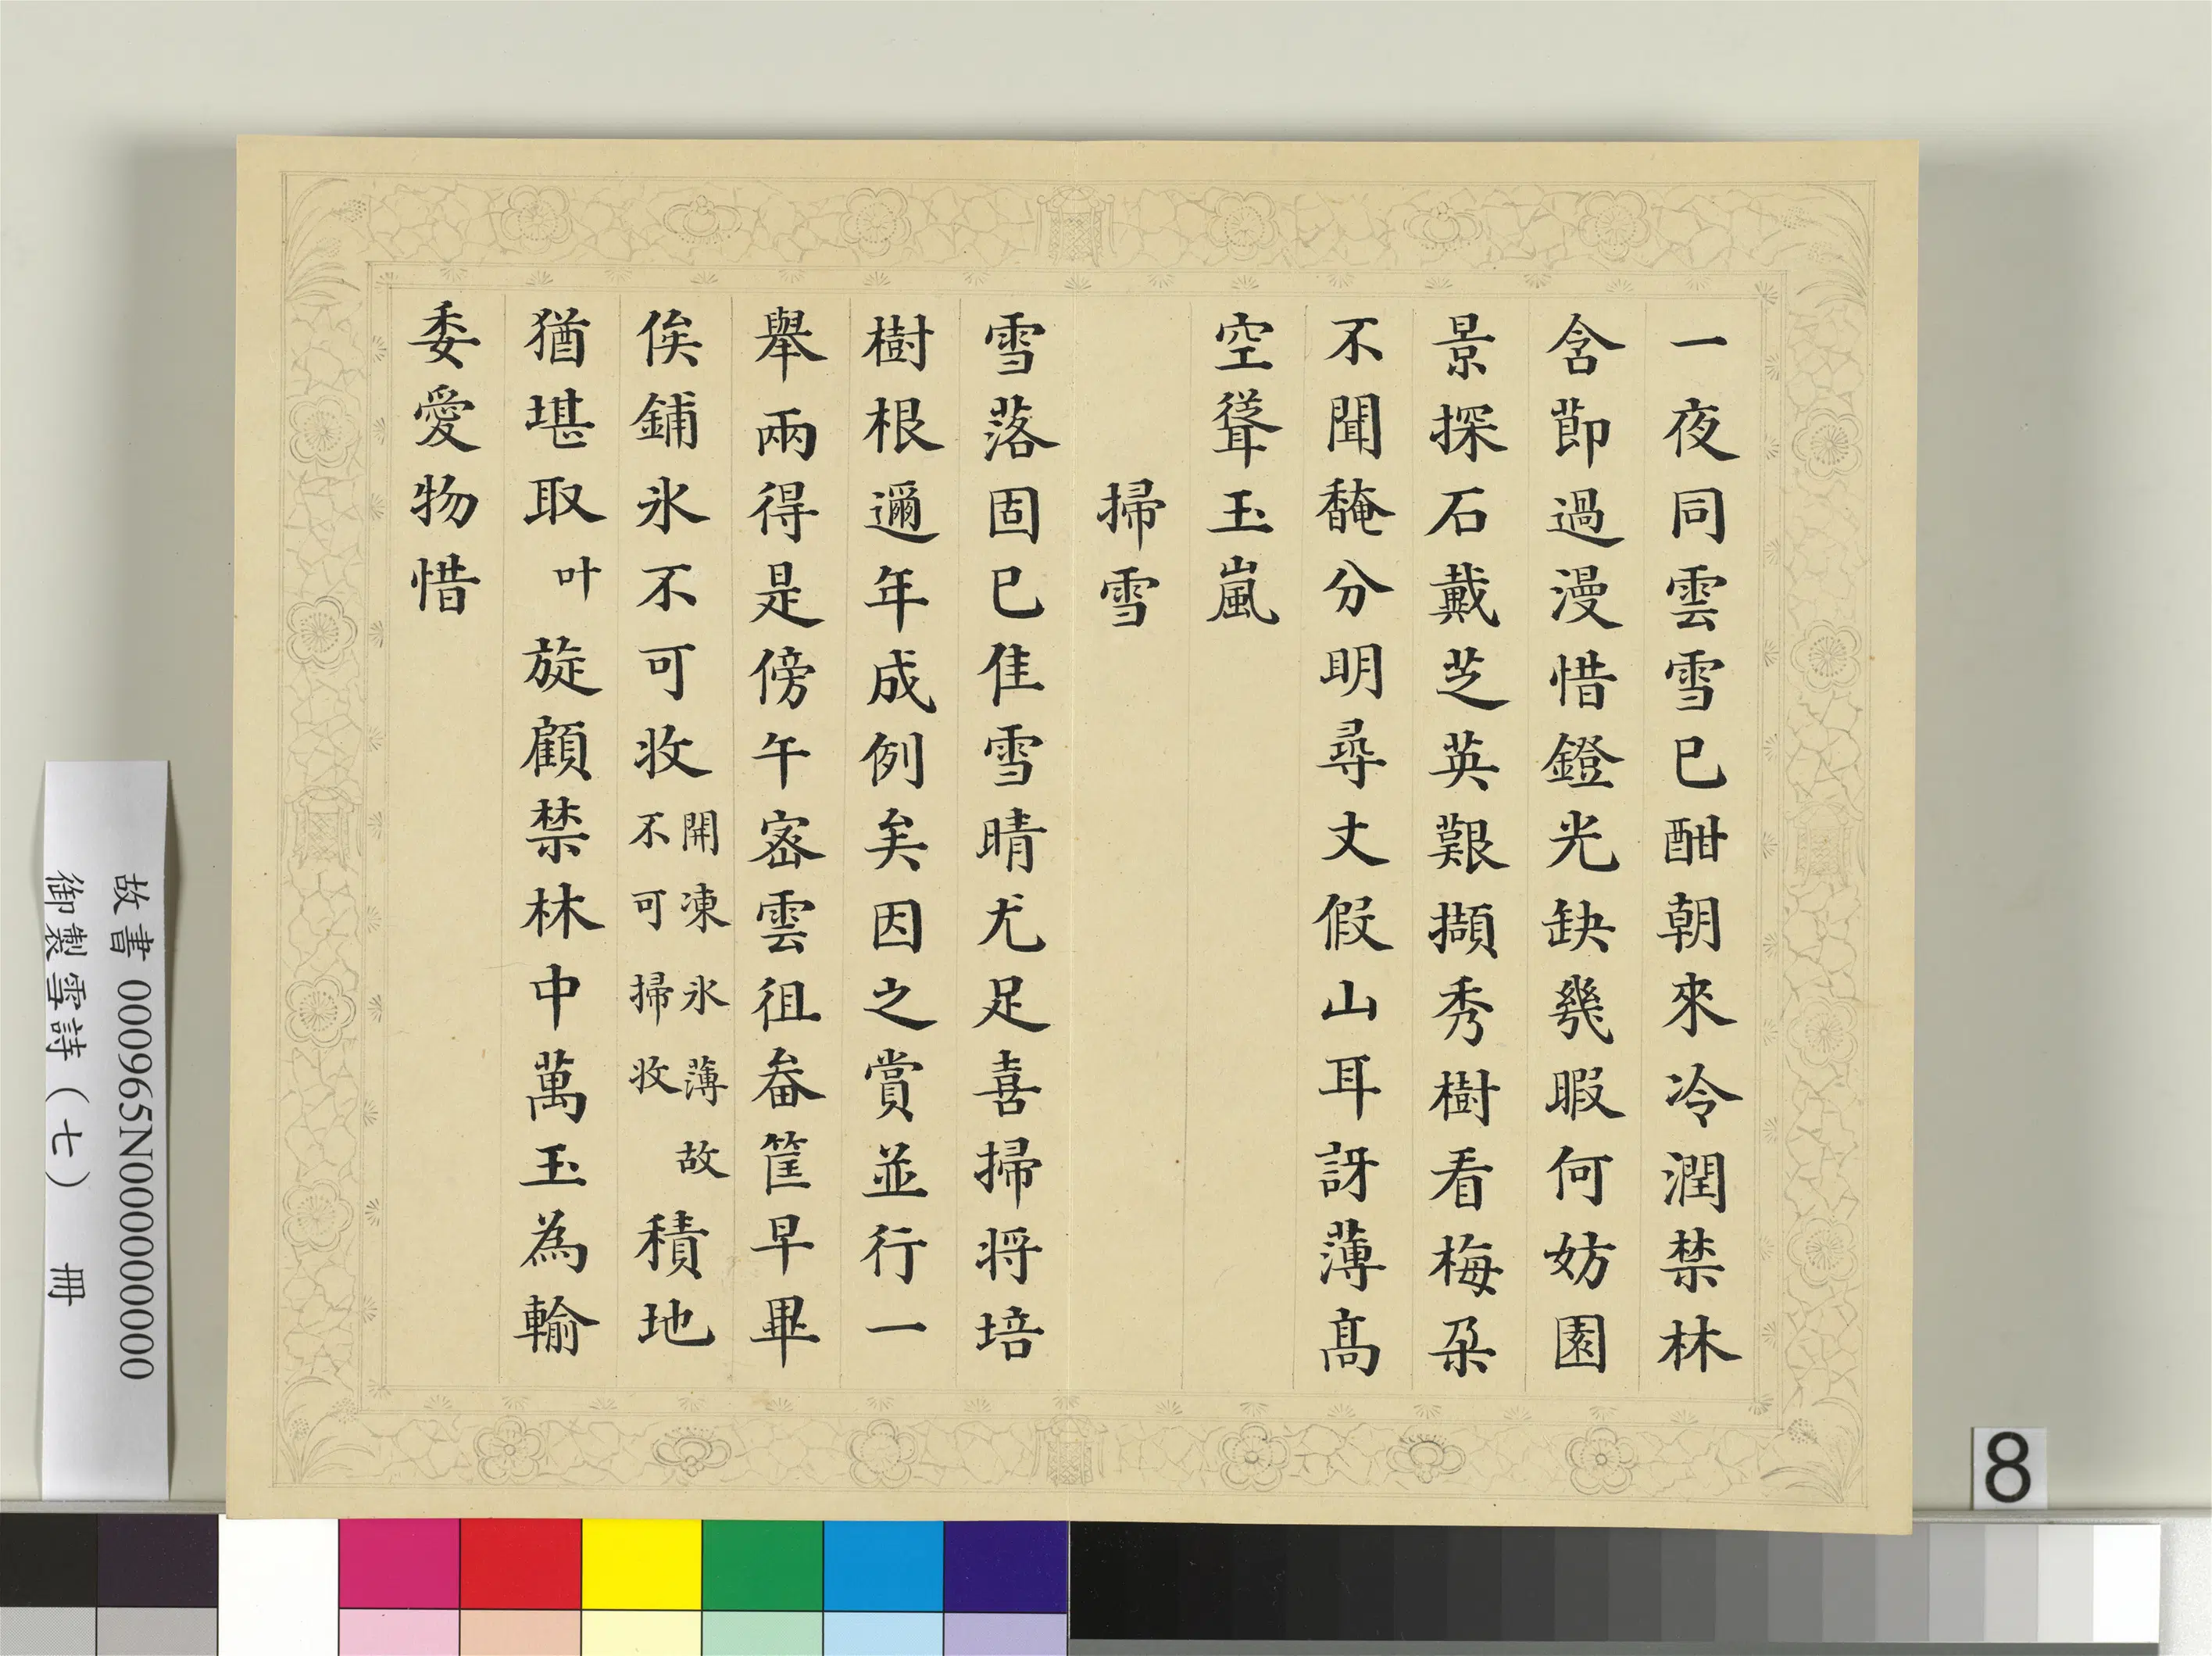 一夜同雲雪已酣朝來冷潤禁林
含節過漫惜鐙光缺幾暇何妨園
景探石戴芝英艱擷秀樹看梅朶
不聞馣分明尋丈假山耳訝薄髙
空聳玉嵐
掃雪
雪落固已佳雪晴尤足喜掃將培
樹根邇年成例矣因之賞並行一
舉兩得是傍午密雲徂畚筐早畢
俟鋪氷不可收開凍氷薄故不可掃收積地
猶堪取叶旋顧禁林中萬玉為輸
委愛物惜
故書 000965N000000000
御製雪詩（七） 冊
8